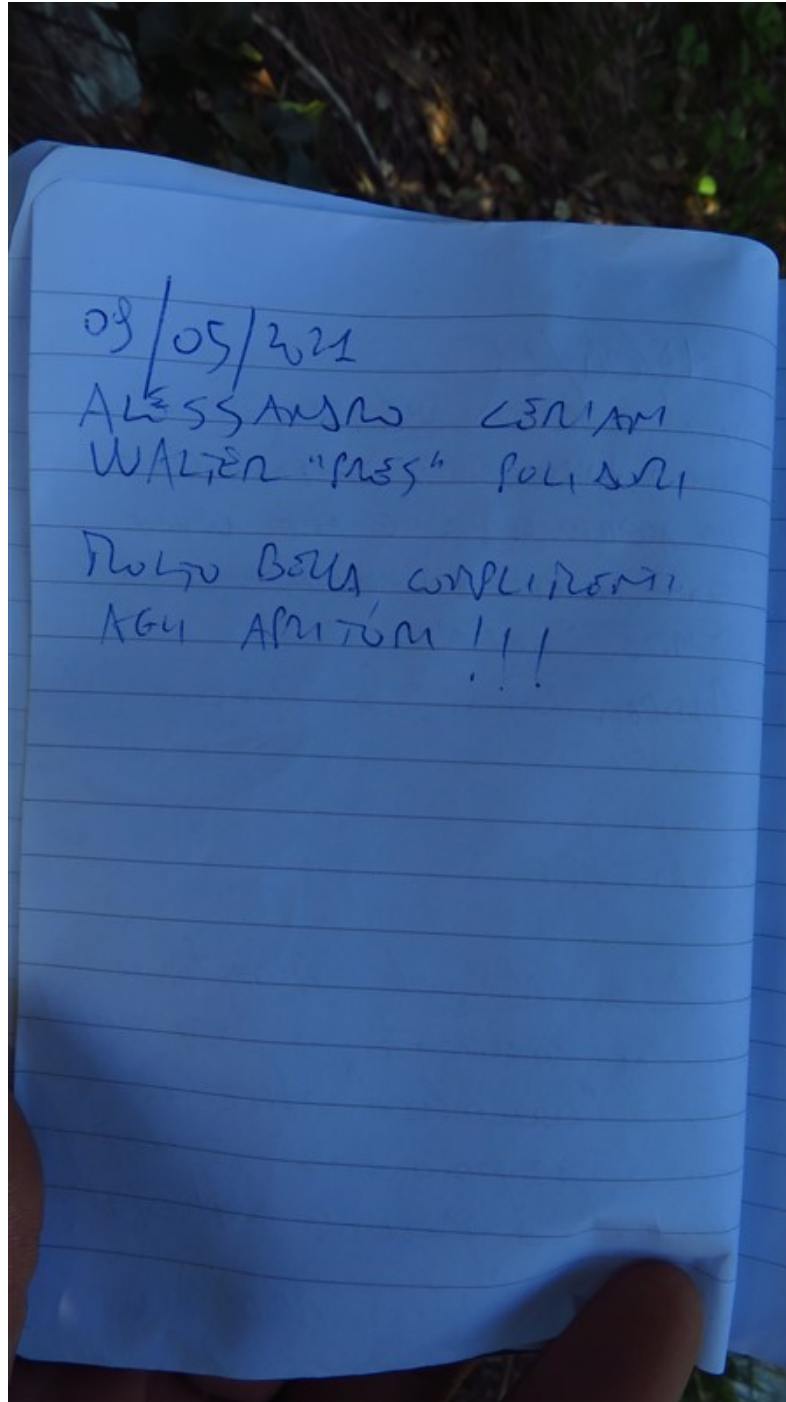 09/05/2021
ALESSANDRO CERIANI
WALTER "PRES" POLIDORI
MOLTO BELLA COMPLIMENTI
AGLI APRITORI!!!